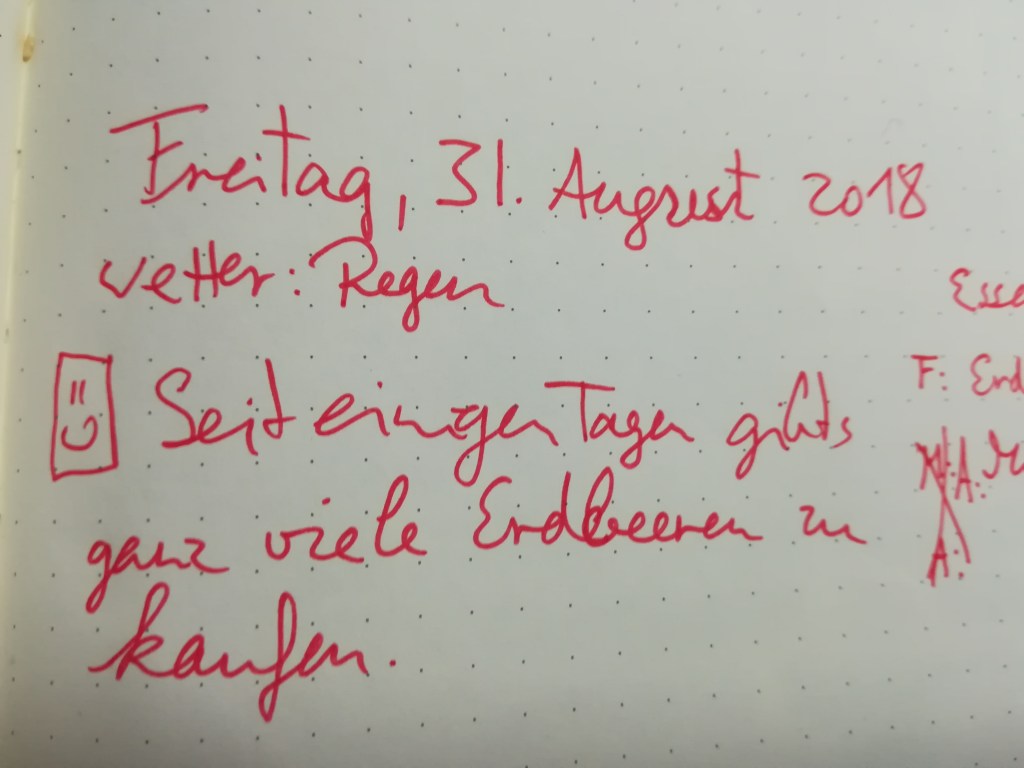 Freitag, 31. August 2018
Wetter: Regen
Seit einigen Tagen gibts
ganz viele Erdbeeren zu
kaufen.
Esse
F: Erd
A: